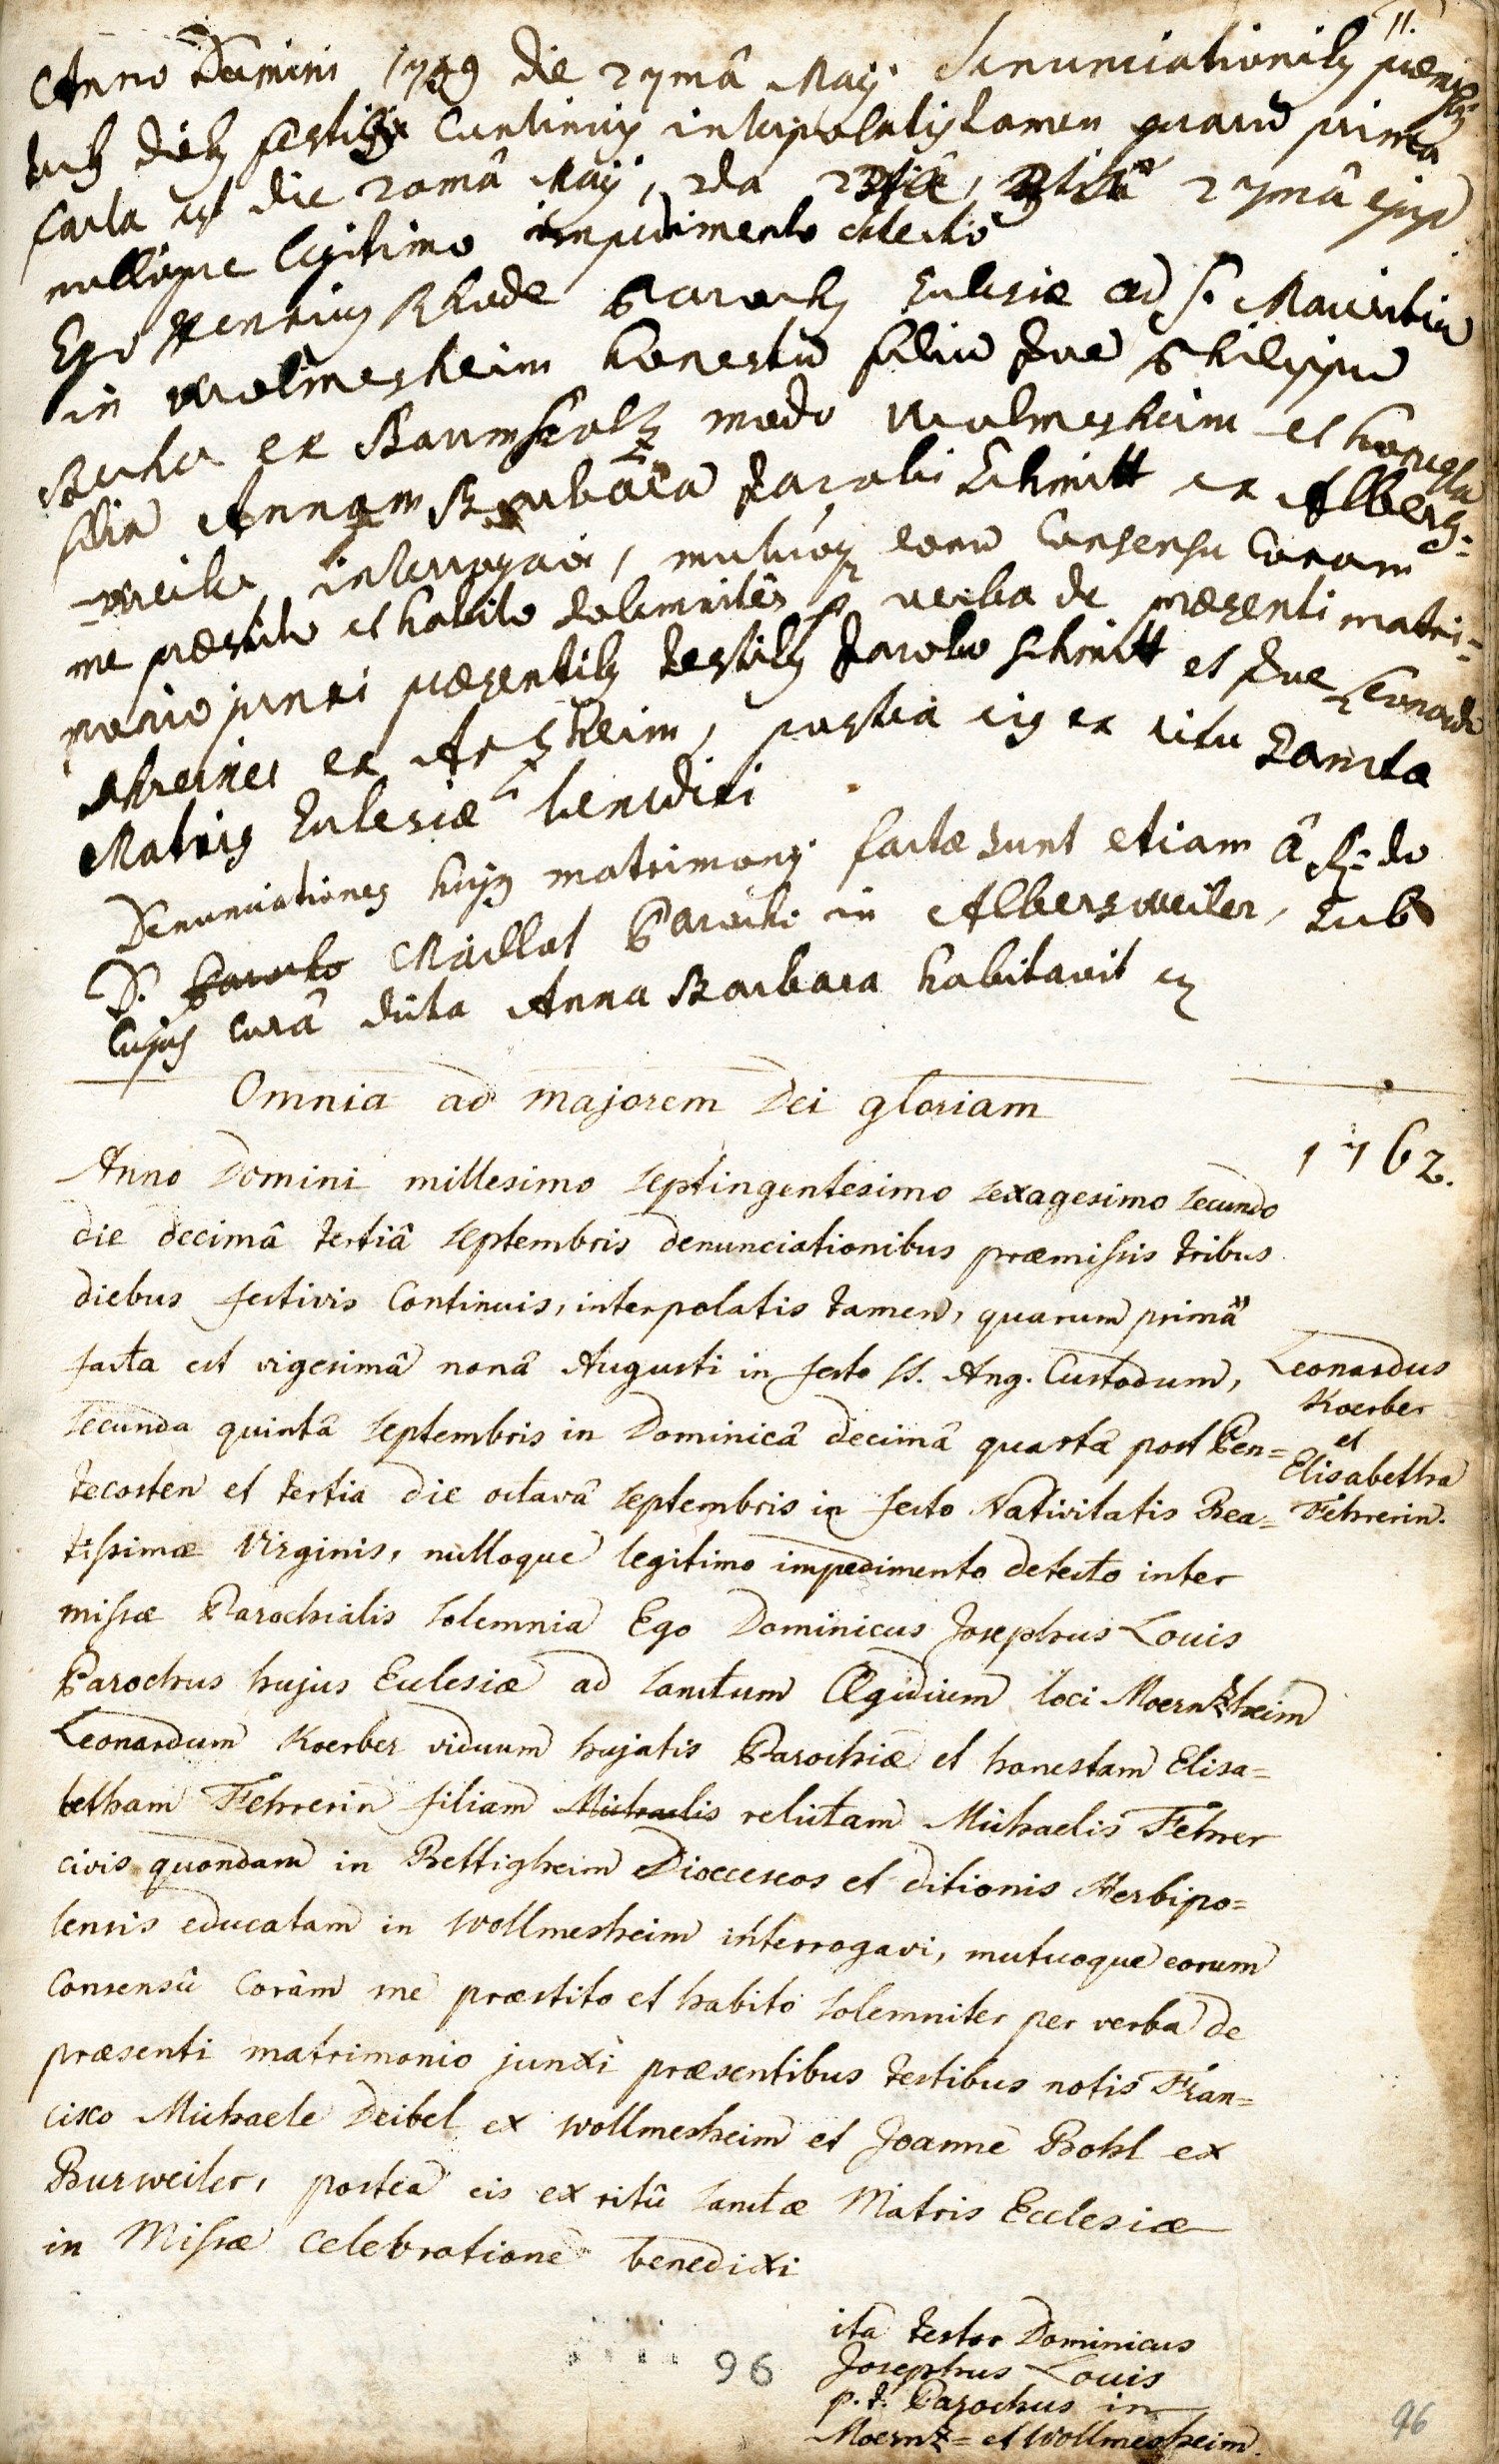 11.
Anno Domini 1749 die 27mâ Maij denunciationib9 præmiss:
trib9 dieb9 festi9 continuis interpolatis tamen quarū prima
facta est die 20mâ Maij, 2da 27mâ ejus
nulloque legitimo impedimento detecto
Ego Henricus Rhode Paroch9 Eclesiæ ad S. Mauritiū
in Wolmesheim honestū filiū Joē Philippū
ex modo Wolmesheim et honestā
filiā Annam Barbarā Jacobi Schmitt ex Albers:
=weiler interrogavi, mutuoq eorū Consensu Coram
me præstito et habito Solemniter p verba de præsenti matri=
monio junxi præsentib9 testib9 Jacobo Schmitt et Joe Leonardo
Schreiner ex Artzheim, postea eis ex ritu Sanctæ
Matris Eclesiæ benedixi
Denunciationes huj9 matrimonij factæ sunt etiam â R:do
D. Parocho Maillot Parocho in Albersweiler, sub
cujus curâ dicta Anna Barbara habitavit
Omnia ad majorem Dei gloriam
1762.
Anno Domini millesimo septingentesimo sexagesimo secundo
die decimâ tertiâ septembris denunciationibus præmissis tribus
diebus festivis Continuis, interpolatis tamen, quarum prima
facta est vigesimâ nonâ Augusti in festo SS. Ang. Custodum,
secunda quintâ septembris in Dominicâ decimâ quartâ post Pen=
tecosten et tertia die octavâ septembris in festo Nativitatis Bea=
tissimæ Virginis, nulloque legitimo impedimento detecto inter
missæ Parochialis solemnia Ego Dominicus Josephus Louis
Parochus hujus Eclesiæ ad sanctum Ægidium loci Moerntzheim
Leonardum Koerber viduum hujatis Parochiæ et honestam Elisa=
betham Fehrerin filiam Michaelis relictam Michaelis Fehrer
civis quondam in Bettigheim Dioeceseos et ditionis Herbipo=
lensis educatam in Wollmesheim interrogavi, mutuoque eorum
Consensû Corâm me præstito et habito solemniter per verba de
præsenti matrimonio junxi præsentibus testibus notis Fran=
cisco Michaele Deibel ex Wollmesheim et Joanne Bohl ex
Burweiler, postea eis ex ritû sanctæ Matris Ecclesiæ
in Missæ Celebratione benedixi
Leonardus
Koerber
et
Elisabetha
Fehrerin.
ita testor Dominicus
Josephus Louis
p.t. Parochus in
Moerntz= et Wollmesheim.
96
96